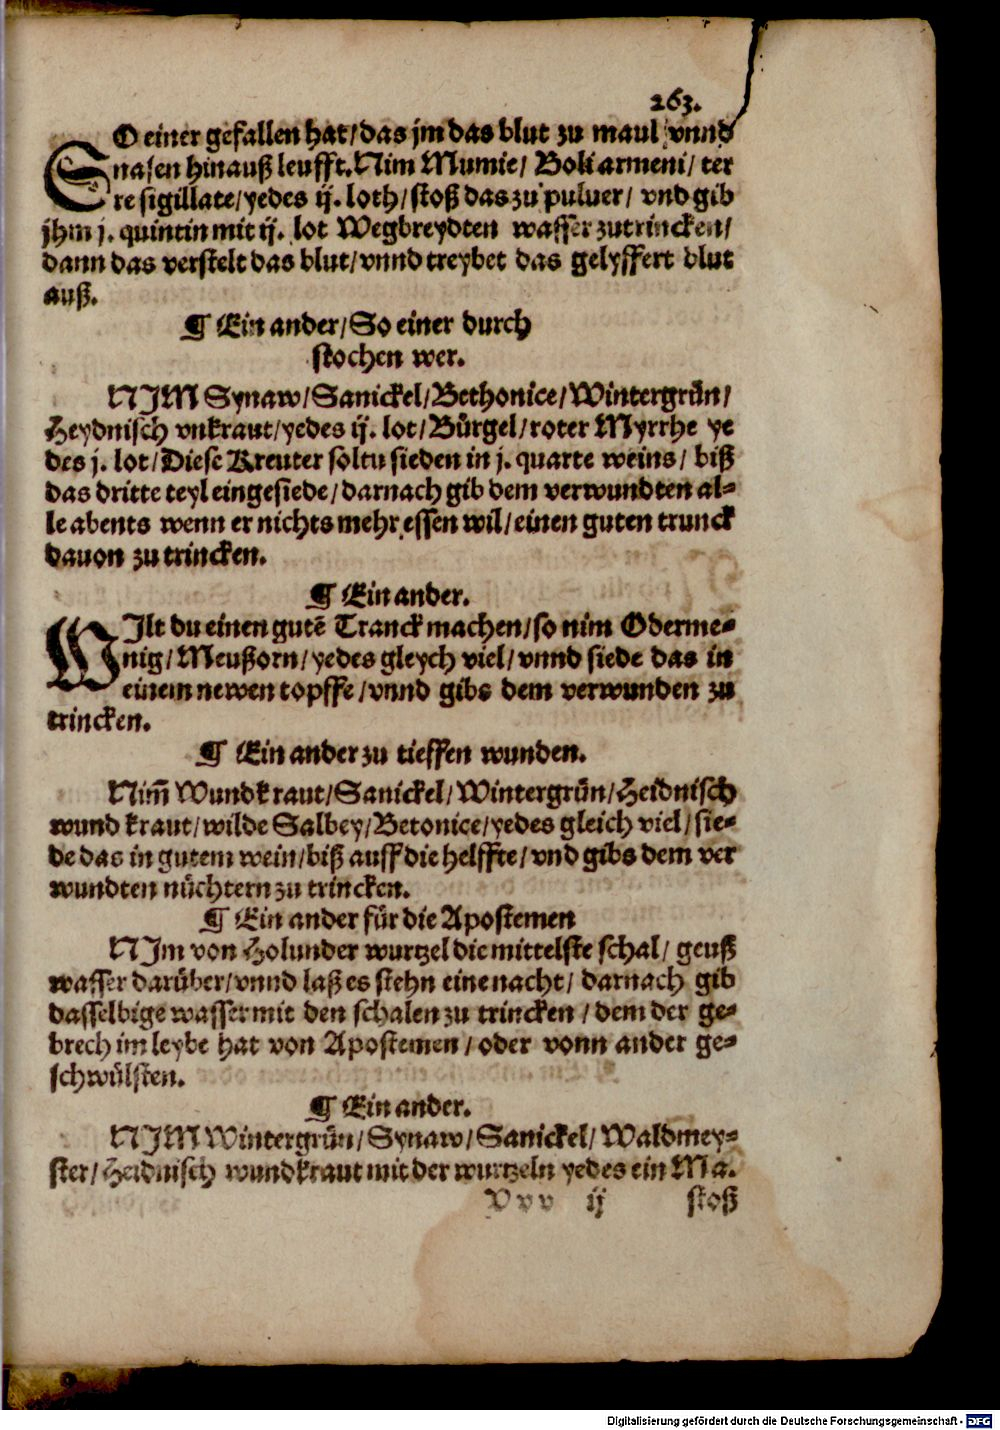 263.
SO einer gefallen hat/das jm das blut zu maul vnnd
nasen hinauß leufft. Nim Mumie/ Boli armeni/ ter
re sigillate/yedes ij. loth/stoß das zu puluer/ vnd gib
jhm j. quintin mit ij. lot Wegbreydten wasser zutrincken/
dann das verstelt das blut/vnnd treybet das gelyffert blut
auß.
¶ Ein ander/So einer durch
stochen wer.
NJM Synaw/Sanickel/Bethonice/Wintergrün/
Heydnisch vnkraut/yedes ij. lot/Bürgel/roter Myrrhe ye
des j. lot/Diese Kreuter soltu sieden in j. quarte weins/ biß
das dritte teyl eingesiede/darnach gib dem verwundten al⸗
le abents wenn er nichts mehr essen wil/einen guten trunck
dauon zu trincken.
¶ Ein ander.
WJlt du einen gutē Tranck machen/so nim Oderme⸗
nig/Meußorn/yedes gleych viel/vnnd siede das in
einem newen topffe/vnnd gibs dem verwunden zu
trincken.
¶ Ein ander zu tieffen wunden.
Nim̃ Wundkraut/Sanickel/Wintergrün/Heidnisch
wund kraut/wilde Salbey/Betonice/yedes gleich viel/sie⸗
de das in gutem wein/biß auff die helffte/vnd gibs dem ver
wundten nüchtern zu trincken.
¶ Ein ander für die Apostemen
NJm von Holunder wurtzel die mittelste schal/ geuß
wasser darüber/vnnd laß es stehn eine nacht/ darnach gib
dasselbige wasser mit den schalen zu trincken/dem der ge⸗
brech im leybe hat von Apostemen/oder vonn ander ge⸗
schwülsten.
¶ Ein ander.
NJM Wintergrün/Synaw/Sanickel/Waldmey⸗
ster/Heidnisch wundkraut mit der wurtzeln yedes ein Ma.
Vvv ij stoß
Digitalisierung gefördert durch die Deutsche Forschungsgemeinschaft - DFG